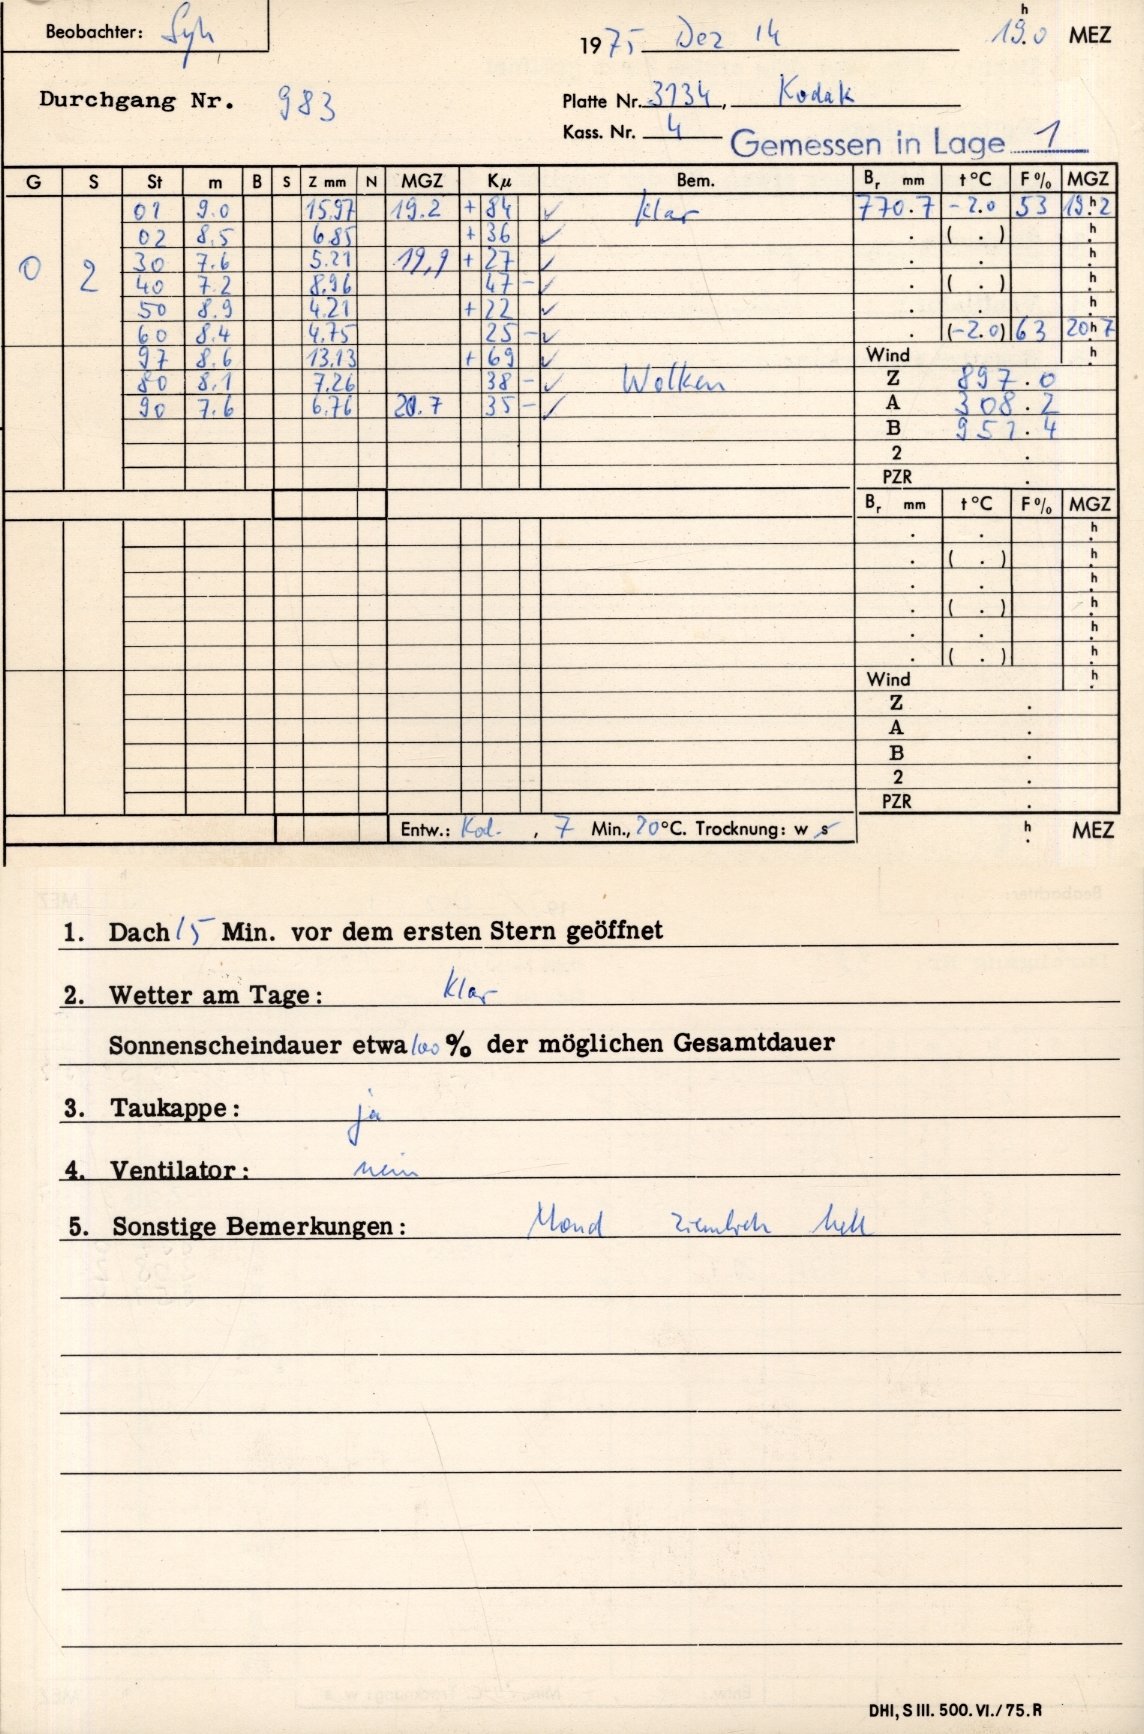 Beobachter: Syh
1975 Dez 14 19.0 h MEZ
Durchgang Nr. 983
Platte Nr. 3134, Kodak
Kass. Nr. 4 Gemessen in Lage 1
G S St m B S Z mm N MGZ Kμ Bem. Br mm t °C F % MGZ
01 9.0 15.97 19.2 + 84 ✓ klar 770.7 -2.0 53 19.h2
02 8.5 6.85 + 36 ✓ . ( . ) h.
0 2 30 7.6 5.21 19,9 + 27 ✓ . . h.
40 7.2 8.96 47 - ✓ . ( . ) h.
50 8.9 4.21 + 22 ✓ . . h.
60 8.4 4.75 25 - ✓ . (-2.0) 63 20.h7
97 8.6 13.13 + 69 ✓ Wind h.
80 8.1 7.26 38 - ✓ Wolken Z 897.0
90 7.6 6.76 20.7 35 - ✓ A 308.2
B 951.4
2 .
PZR .
Br mm t °C F % MGZ
. . h.
. ( . ) h.
. . h.
. ( . ) h.
. . h.
. ( . ) h.
Wind h.
Z .
A .
B .
2 .
PZR .
Entw.: Kod. , 7 Min., 20 °C. Trocknung: w s h. MEZ
1. Dach 15 Min. vor dem ersten Stern geöffnet
2. Wetter am Tage: klar
Sonnenscheindauer etwa 100 % der möglichen Gesamtdauer
3. Taukappe: ja
4. Ventilator: nein
5. Sonstige Bemerkungen: Mond ziemlich hell
DHI, S III. 500. VI./75. R